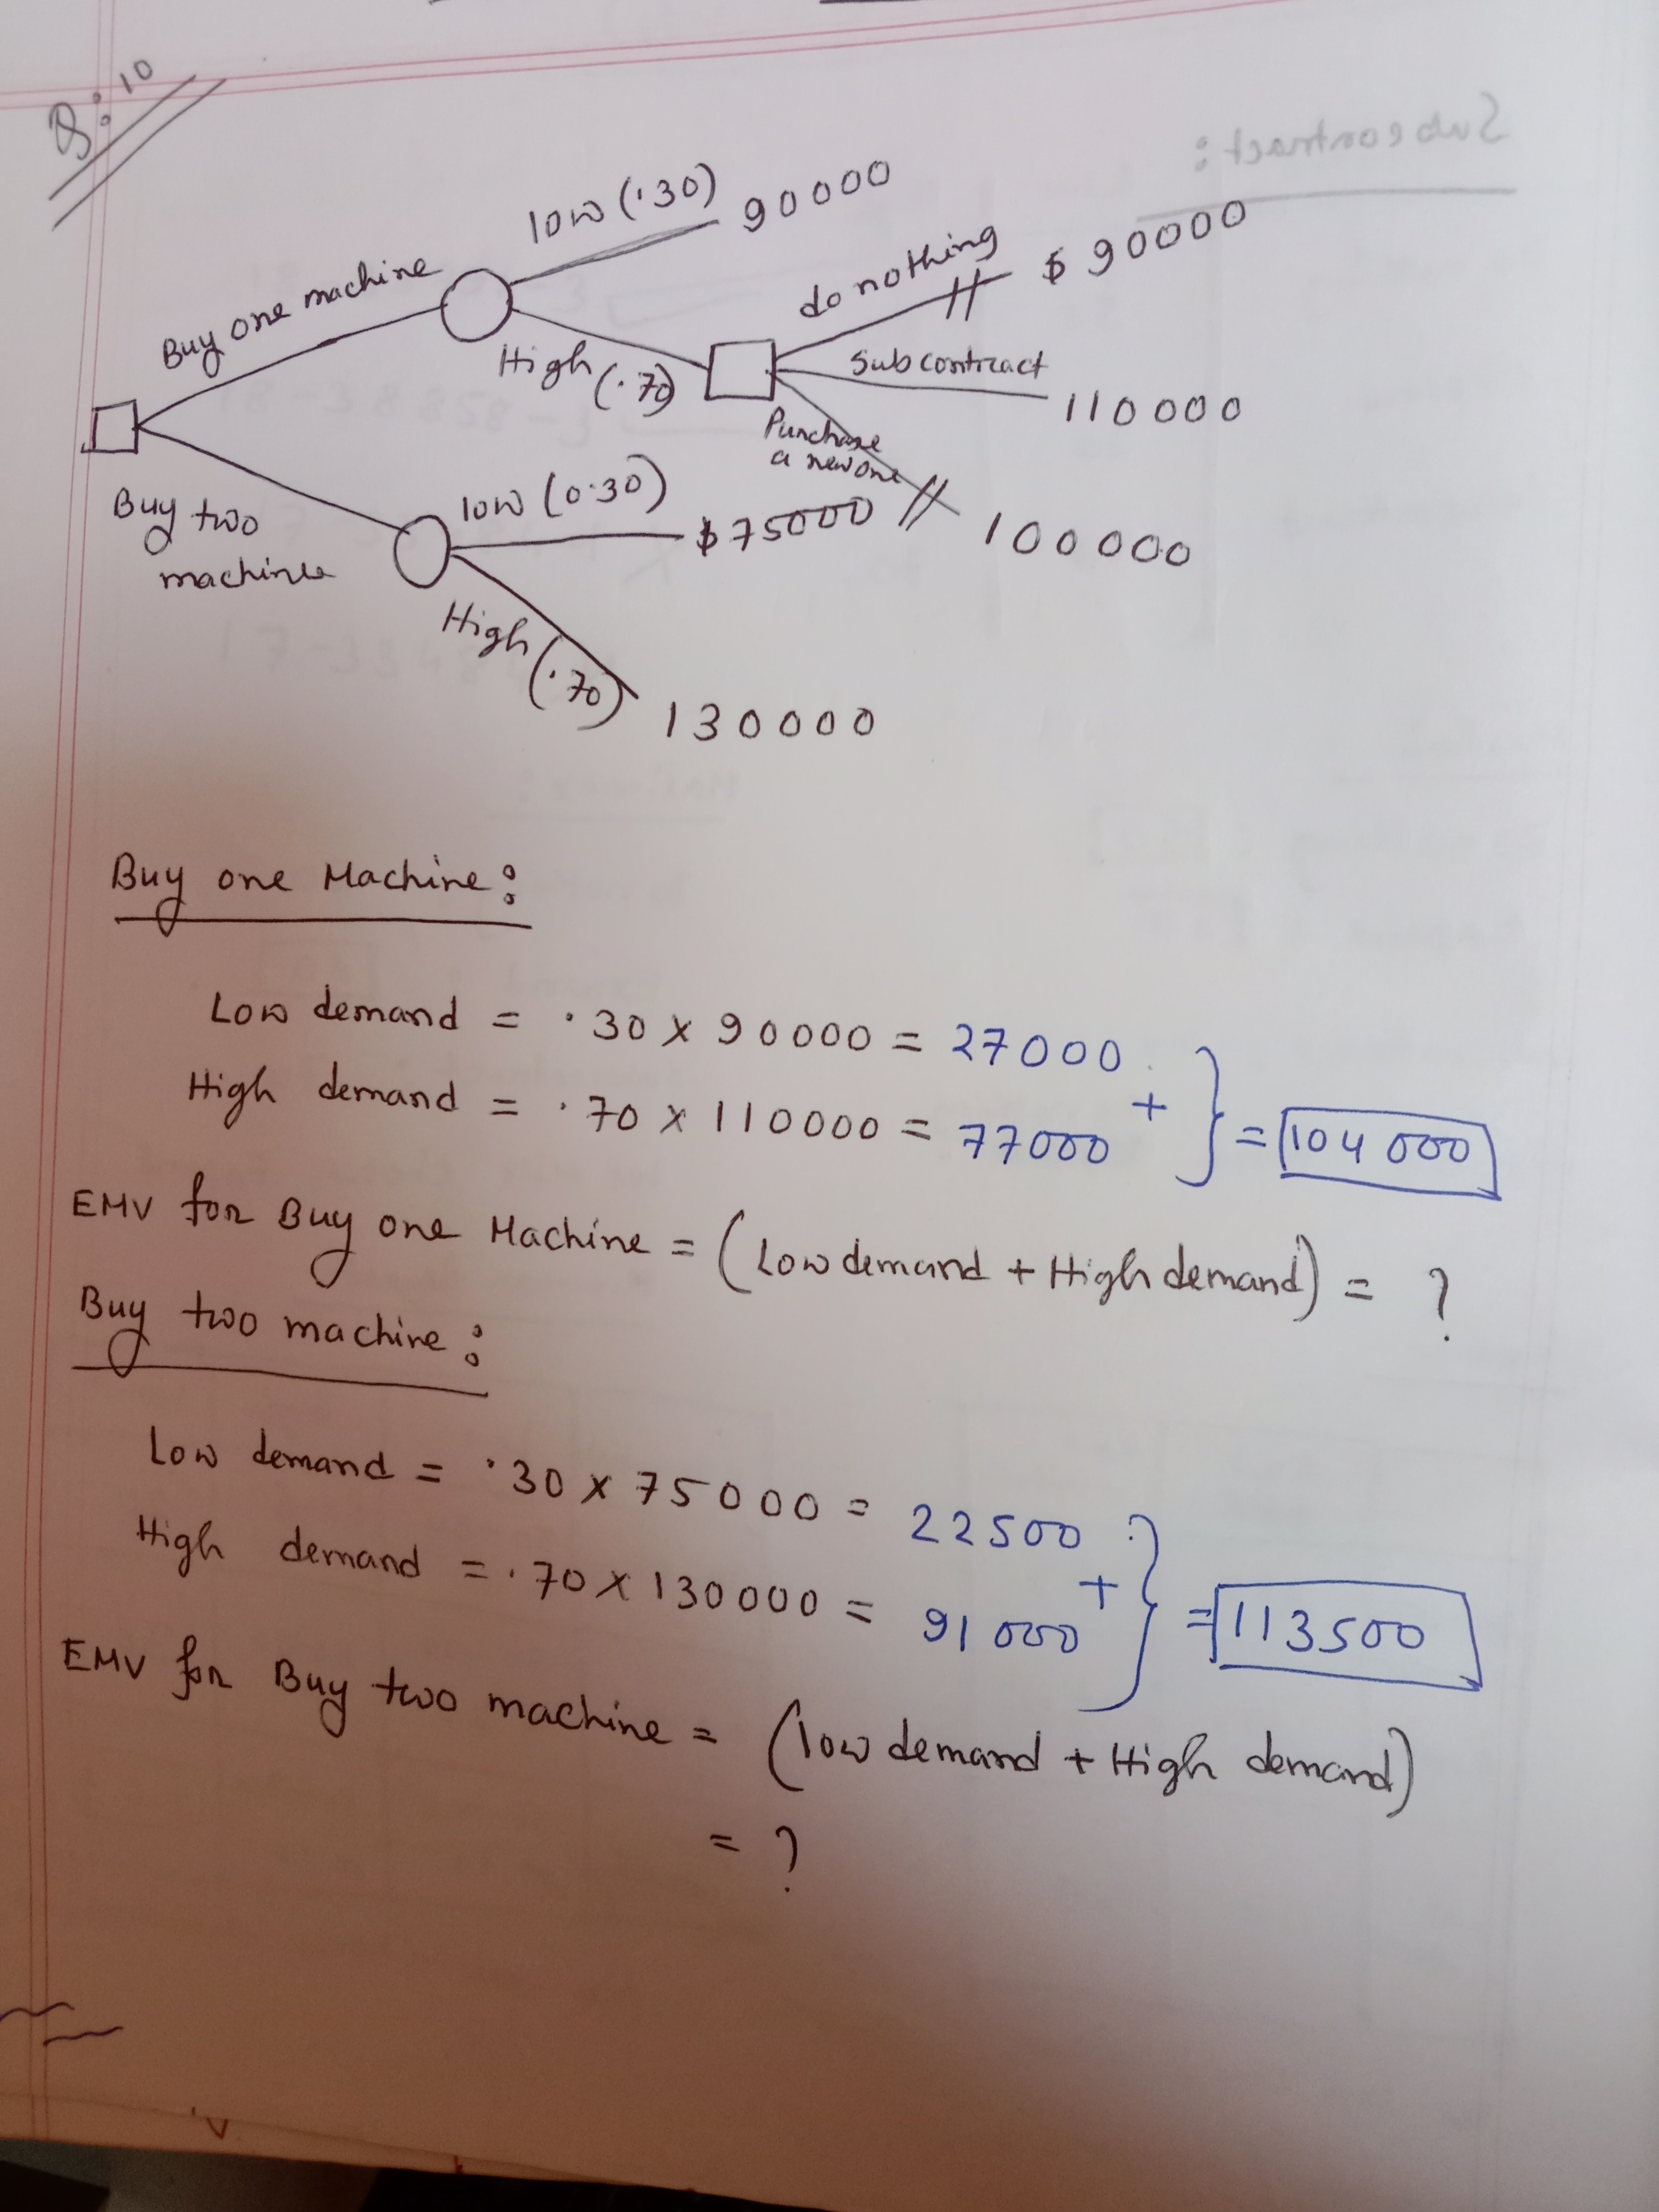 Q: 10
low (.30) 90000
Buy one machine
High (.70)
do nothing $ 90000
Subcontract 110000
Purchase
a new one
100000
Buy two
machine
low (0.30) $75000
High (.70)
130000
Subcontract:
Buy one Machine:
Low demand = .30 x 90000 = 27000
High demand = .70 x 110000 = 77000 + } = 104 000
EMV for Buy one Machine = (Low demand + High demand) = ?
Buy two machine:
Low demand = .30 x 75000 = 22500
High demand = .70 x 130000 = 91 000 + } = 113500
EMV for Buy two machine = (low demand + High demand)
= ?